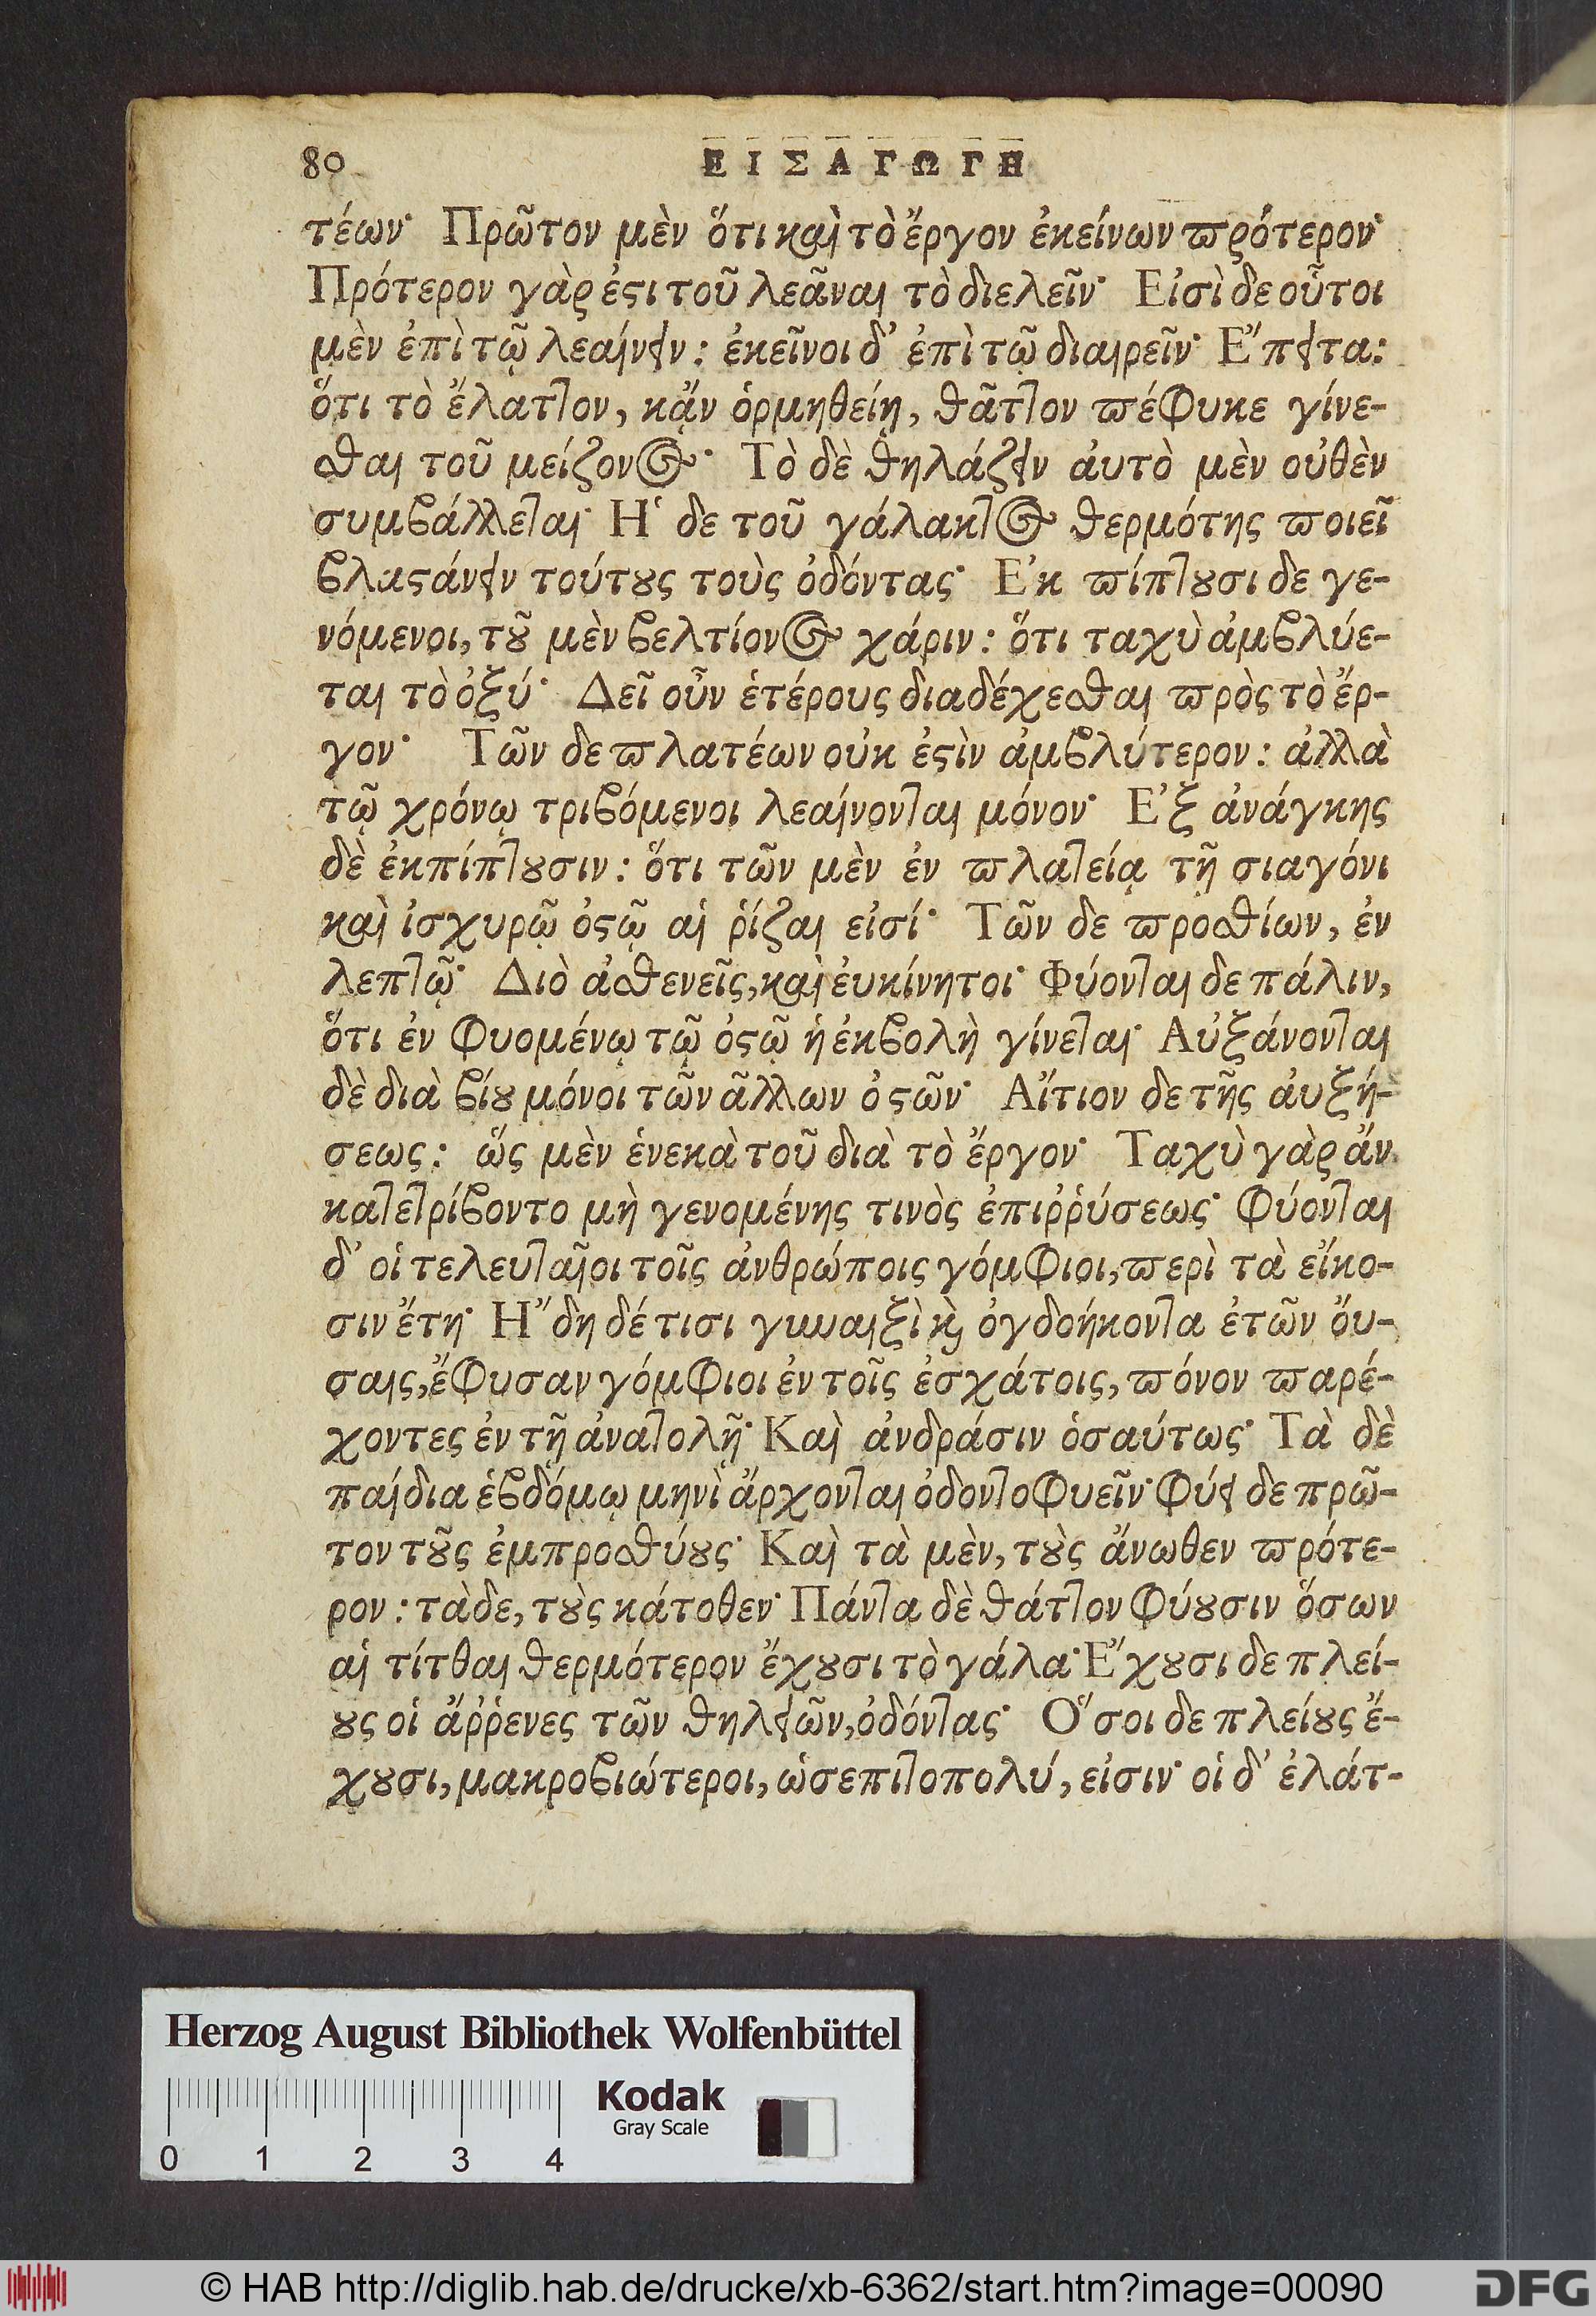 80 ΕΙΣΑΓΩΓΗ
τέων· Πρῶτον μὲν ὅτι καὶ τὸ ἔργον ἐκείνων ϖρότερον·
Πρότερον γὰρ ἐϛι τοῦ λεᾶναι τὸ διελεῖν· Εἰσὶ δε οὗτοι
μὲν ἐπὶ τῷ λεαίνειν: ἐκεῖνοι δ' ἐπὶ τῷ διαιρεῖν· Ἔπειτα:
ὅτι τὸ ἔλατῖον, κᾂν ὁρμηθείῃ, θᾶτῖον ϖέφυκε γίνε-
σθαι τοῦ μείζονος· Τὸ δὲ θηλάζειν ἀυτὸ μὲν οὐθὲν
συμβάλλεται· Ἡ δε τοῦ γάλακτος θερμότης ϖοιεῖ
βλαϛάνειν τούτȣς τοὺς ὀδόντας· Ἐκ ϖίπτȣσι δε γε-
νόμενοι, τȣ͂ μὲν βελτίονος χάριν: ὅτι ταχὺ ἀμβλύε-
ται τὸ ὀξύ· Δεῖ οὖν ἑτέρους διαδέχεσθαι ϖρὸς τὸ ἔρ-
γον· Τῶν δε ϖλατέων οὐκ ἐϛὶν ἀμβλύτερον: ἀλλὰ
τῷ χρόνῳ τριβόμενοι λεαίνονται μόνον· Ἐξ ἀνάγκης
δὲ ἐκπίπτȣσιν: ὅτι τῶν μὲν ἐν ϖλατείᾳ τῇ σιαγόνι
καὶ ἰσχυρῷ ὀϛῷ αἱ ῥίζαι εἰσί· Τῶν δε ϖροσθίων, ἐν
λεπτῷ· Διὸ ἀσθενεῖς, καὶ ἐυκίνητοι· Φύονται δε πάλιν,
ὅτι ἐν φυομένῳ τῷ ὀϛῷ ἡ ἐκβολὴ γίνεται· Αὐξάνονται
δὲ διὰ βίȣ μόνοι τῶν ἄλλων ὀϛῶν· Αἴτιον δε τῆς ἀυξή-
σεως: ὥς μὲν ἑνεκὰ τοῦ διὰ τὸ ἔργον· Ταχὺ γὰρ ἂν
κατετρίβοντο μὴ γενομένης τινὸς ἐπιῤῥύσεως· Φύονται
δ' οἱ τελευταῖοι τοῖς ἀνθρώποις γόμφιοι, ϖερὶ τὰ εἴκο-
σιν ἔτη· Ἤδη δέ τισι γυναιξὶ ϗ ὀγδοήκοντα ἐτῶν ὄυ-
σαις, ἔφυσαν γόμφιοι ἐν τοῖς ἐσχάτοις, ϖόνον ϖαρέ-
χοντες ἐν τῇ ἀνατολῇ· Καὶ ἀνδράσιν ὁσαύτως· Τὰ δὲ
παίδια ἑβδόμῳ μηνὶ ἄρχονται ὀδοντοφυεῖν· Φύει δε πρῶ-
τον τȣ͂ς ἐμπροσθύȣς· Καὶ τὰ μὲν, τȣ̀ς ἄνωθεν ϖρότε-
ρον: τὰ δε, τȣ̀ς κάτοθεν· Πάντα δὲ θάτῖον φύȣσιν ὅσων
αἱ τίτθαι θερμότερον ἔχȣσι τὸ γάλα· Ἔχȣσι δε πλεί-
ȣς οἱ ἄῤῥενες τῶν θηλειῶν, ὀδόντας· Ὅσοι δε πλείȣς ἔ-
χȣσι, μακροβιώτεροι, ὡσεπιτοπολύ, εἰσιν· οἱ δ' ἐλάτ-
Herzog August Bibliothek Wolfenbüttel
Kodak
Gray Scale
0 1 2 3 4
© HAB http://diglib.hab.de/drucke/xb-6362/start.htm?image=00090
DFG